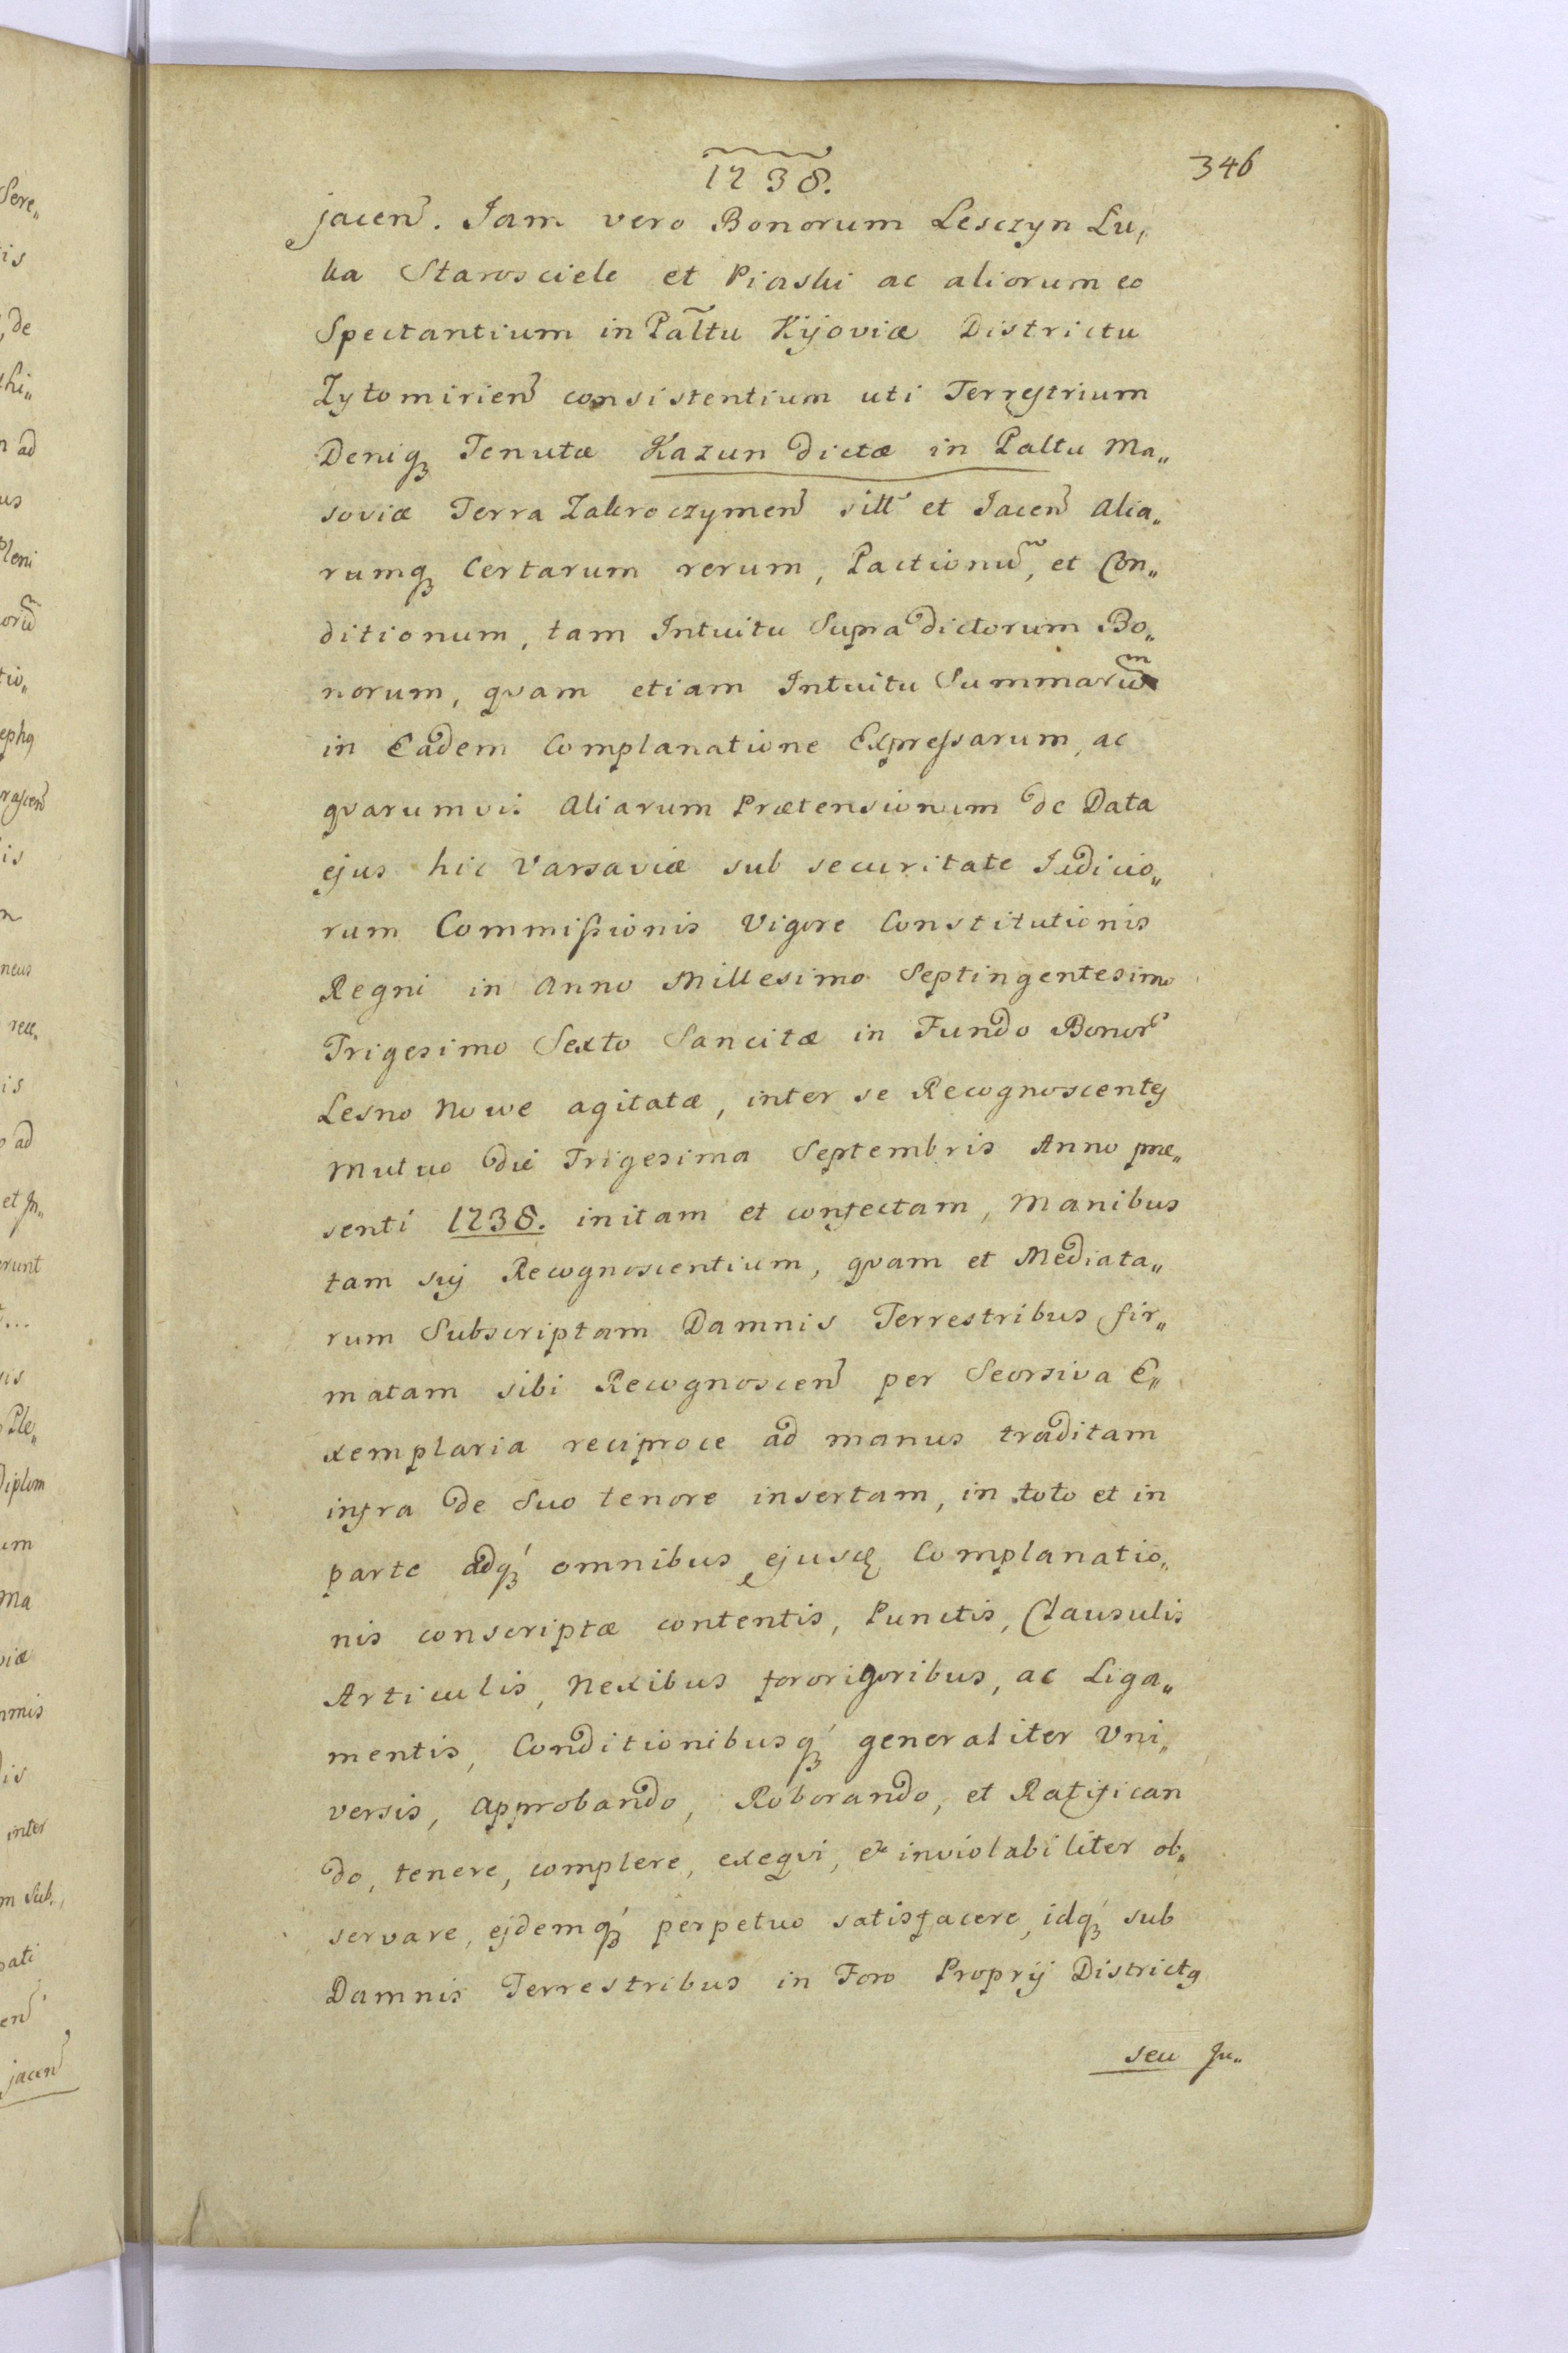 1738.
346
jacen̄. Jam vero Bonorum Lesczyn Lu„
ka Starosciele et Piaski ac aliorum eo
Spectantium in Pal̃tu Kijoviæ Districtu
Zytomirien̄ consistentium uti Terrestrium
Deniqꝫ Tenutæ Kazun dictæ in Paltu Ma„
soviæ Terra Zakroczymen̄ sitt et Jacen̄ Alia„
rumqꝫ Certarum rerum, Pactionũ, et Con„
ditionum, tam Intuitu Supra dictorum Bo„
norum, qvam etiam Intuitu Summarum
in Eadem Complanatione Expressarum, ac
qvarumvis Aliarum Prætensionum de Data
ejus hic Varsaviæ sub securitate Judicio„
rum Commissionis Vigore Constitutionis
Regni in Anno Millesimo Septingentesimo
Trigesimo Sexto Sancitæ in Fundo Bonor̃
Lesno Nowe agitatæ, inter se Recognoscentes
Mutuo die Trigesima Septembris Anno præ„
senti 1738. initam et confectam, Manibus
tam suj Recognoscentium, qvam et Mediata„
rum Subscriptam Damnis Terrestribus fir„
matam sibi Recognoscen̄ per Seorsiva E„
xemplaria reciproce ad manus traditam
infra de Suo tenore insertam, in toto et in
parte adqꝫ omnibus ejusꝗ Complanatio„
nis conscriptæ contentis, Punctis, Clausulis
Articulis, Nexibus fororigoribus, ac Liga„
mentis, Conditionibusqꝫ generaliter Uni„
versis, Approbando, Roborando, et Ratifican
do, tenere, complere, exeqvi, et inviolabiliter ob„
servare, ejdemqꝫ perpetuo satisfacere, idqꝫ sub
Damnis Terrestribus in Foro Proprij Districtꝯ
seu Ju„